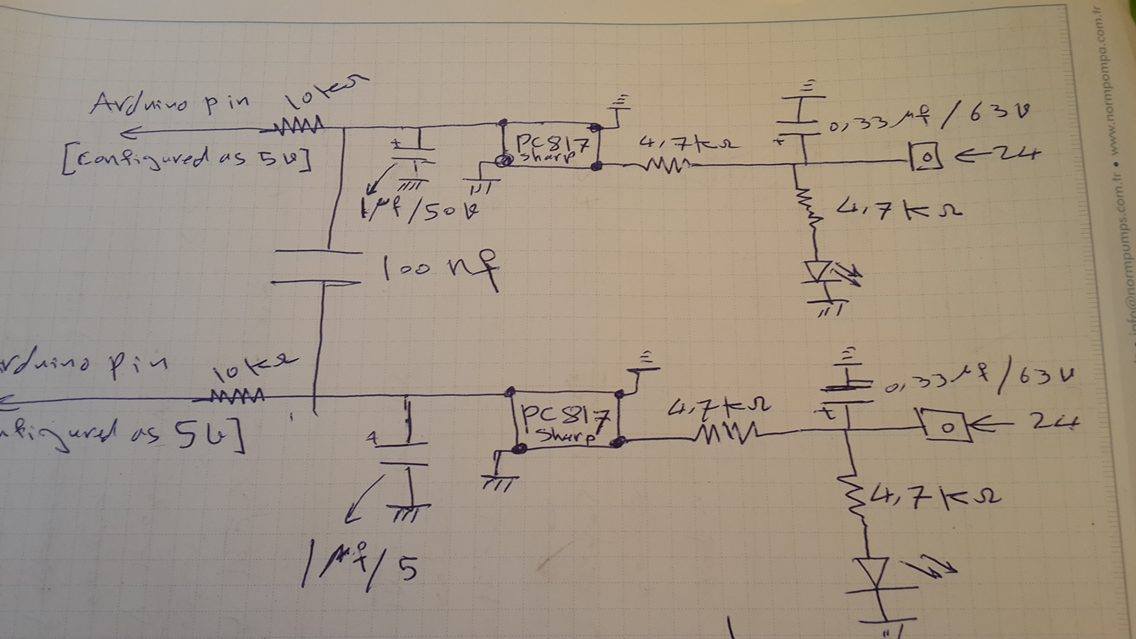 Arduino pin
10kΩ
[Configured as 5V]
PC817
sharp
4.7kΩ
0,33 µf / 63V
24
1µf/50V
4,7KΩ
100nf
Arduino pin
10kΩ
nfigured as 5V]
PC817
sharp
4.7kΩ
0,33µf/63V
24
4,7KΩ
1µf/5
info@normpumps.com.tr • www.normpompa.com.tr